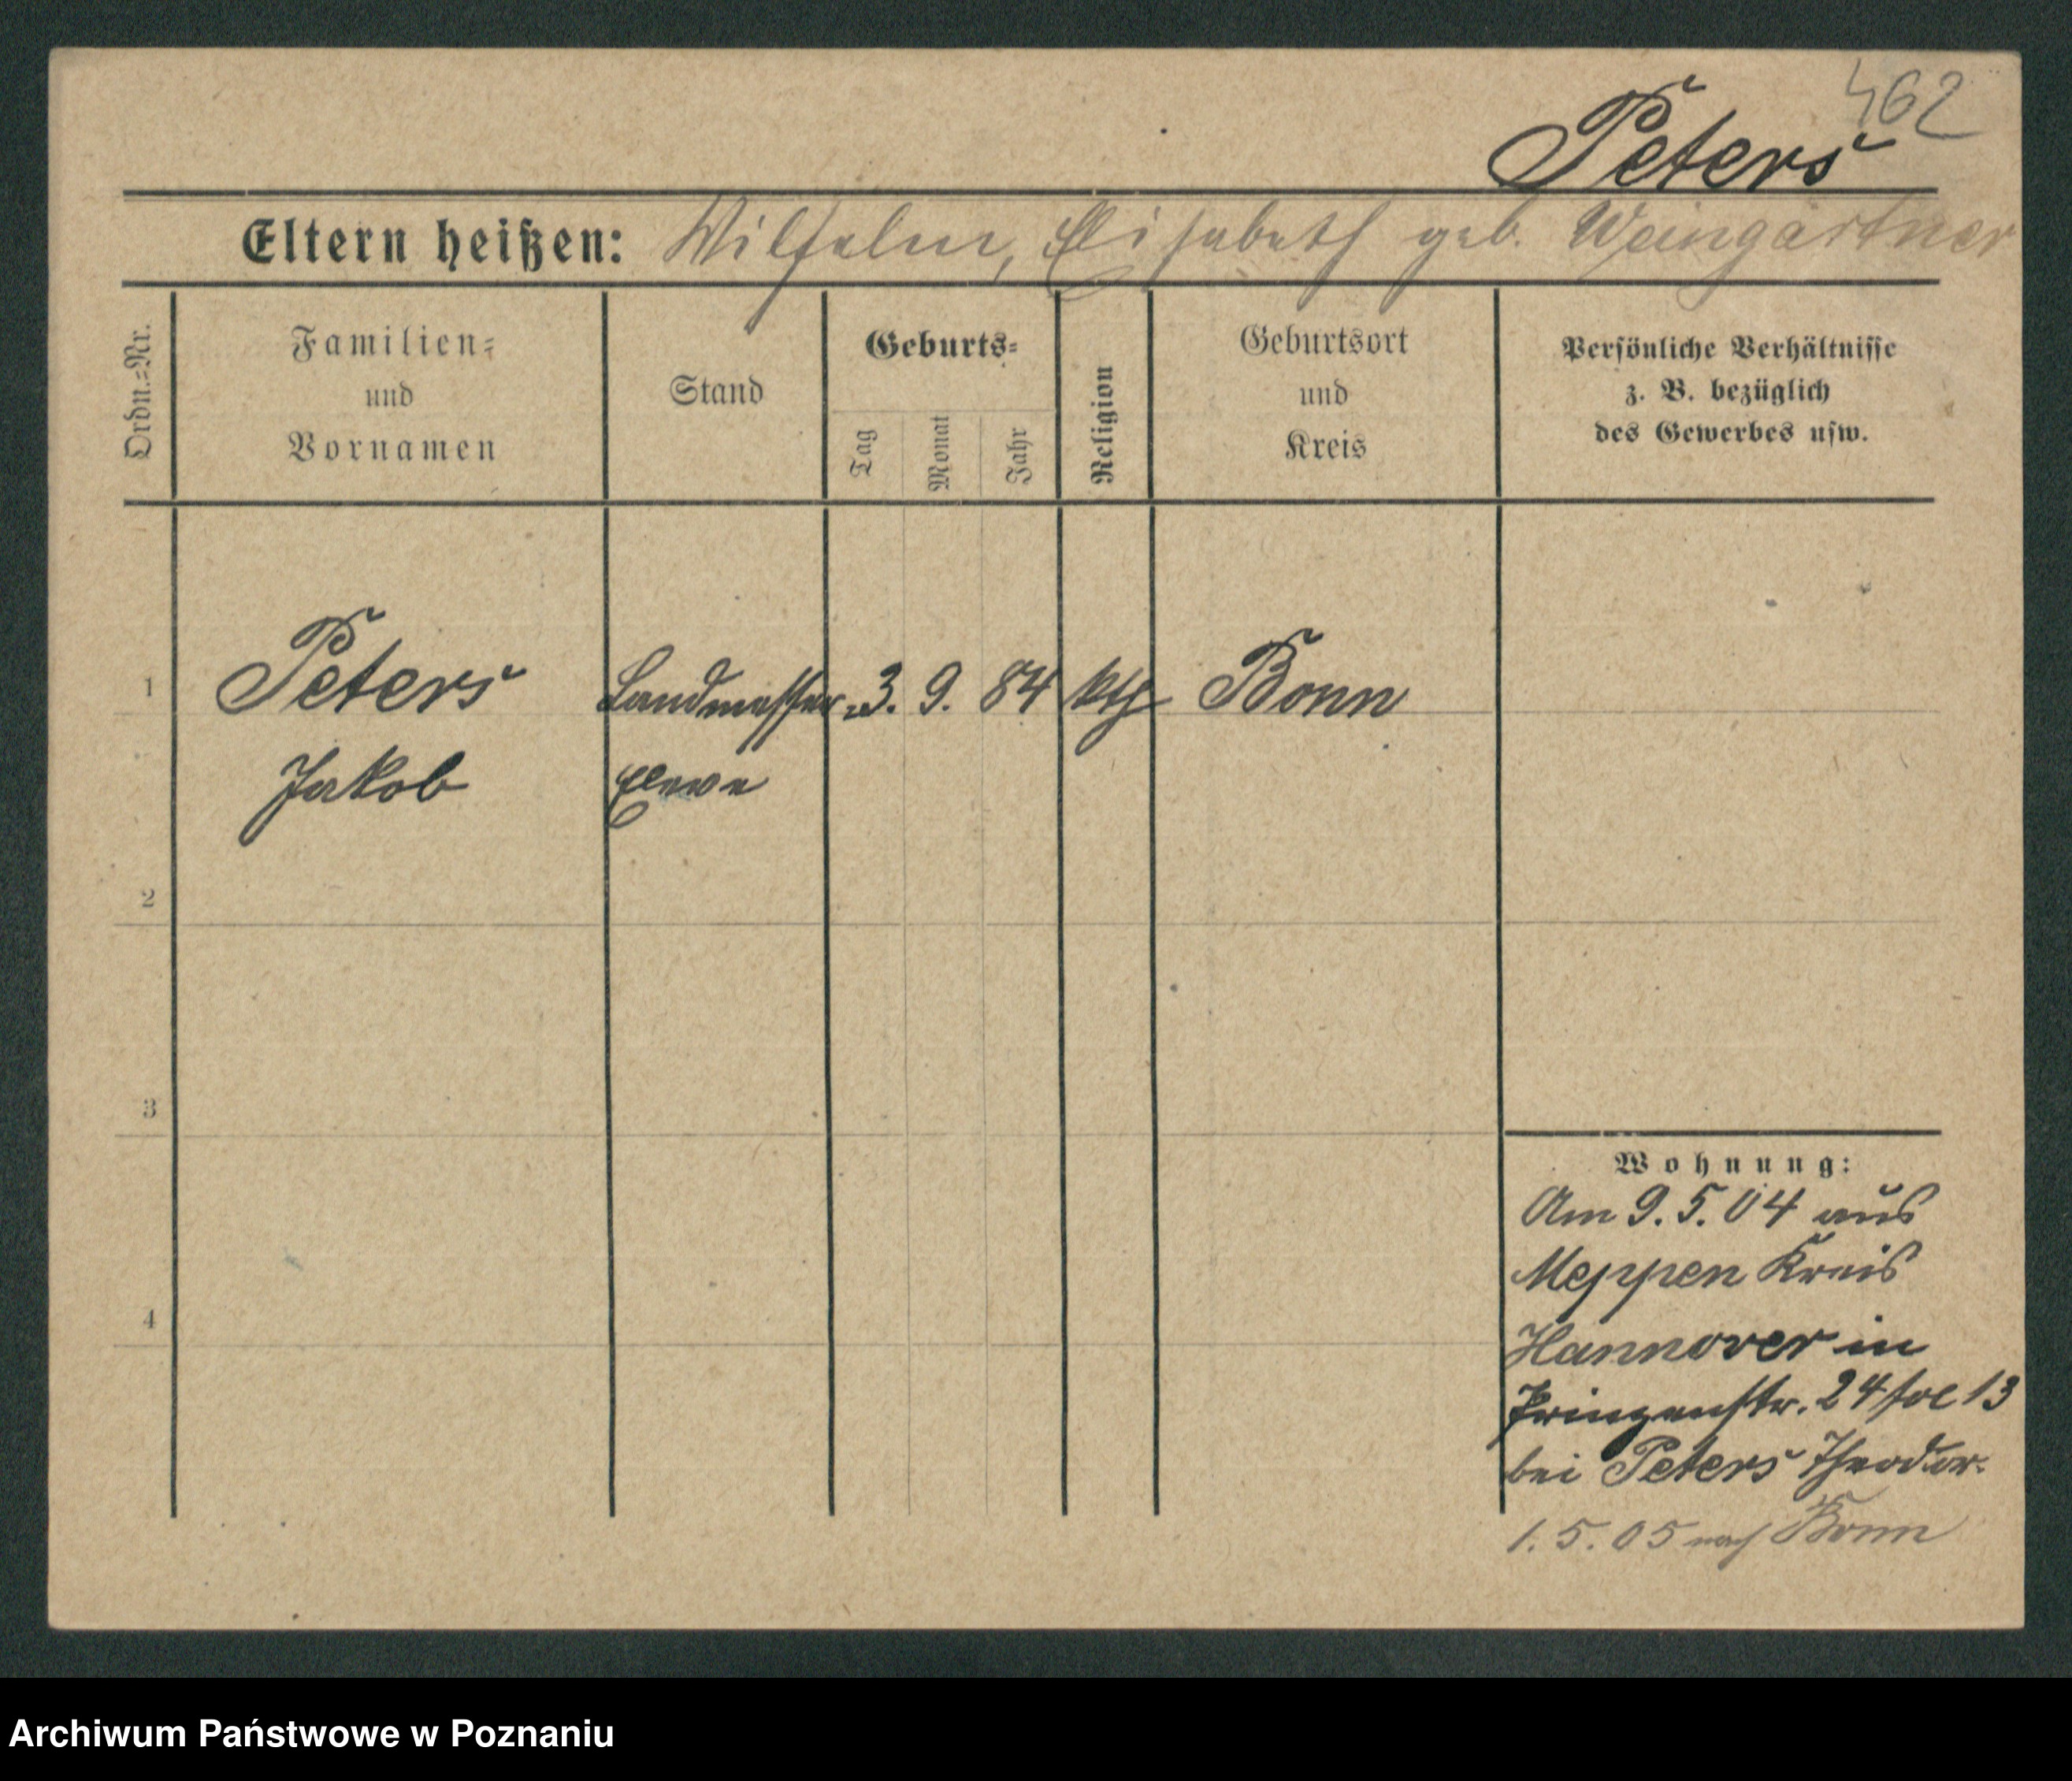 462
Peters
Eltern heißen: Wilhelm, Elisabeth geb. Weingärtner
Ordn.=Nr.
Familien=
und
Vornamen
Stand
Geburts=
Tag
Monat
Jahr
Religion
Geburtsort
und
Kreis
Persönliche Verhältnisse
z. B. bezüglich
des Gewerbes usw.
1 Peters Landmesser= 3. 9. 84 kth Bonn
Jakob Eleve
2
3
4
Wohnung:
Am 9. 5. 04 aus
Meppen Kreis
Hannover in
Prinzenstr. 24 fol 13
bei Peters Theodor.
1. 5. 05 nach Bonn
Archiwum Państwowe w Poznaniu